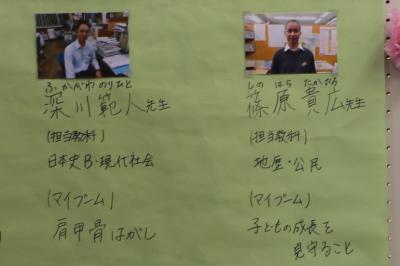 ふかがわ のりひと
深川範人先生
(担当教科)
日本史B・現代社会
(マイブーム)
肩甲骨はがし
しのはら たかひろ
篠原貴広先生
(担当教科)
地歴・公民
(マイブーム)
子どもの成長を
見守ること